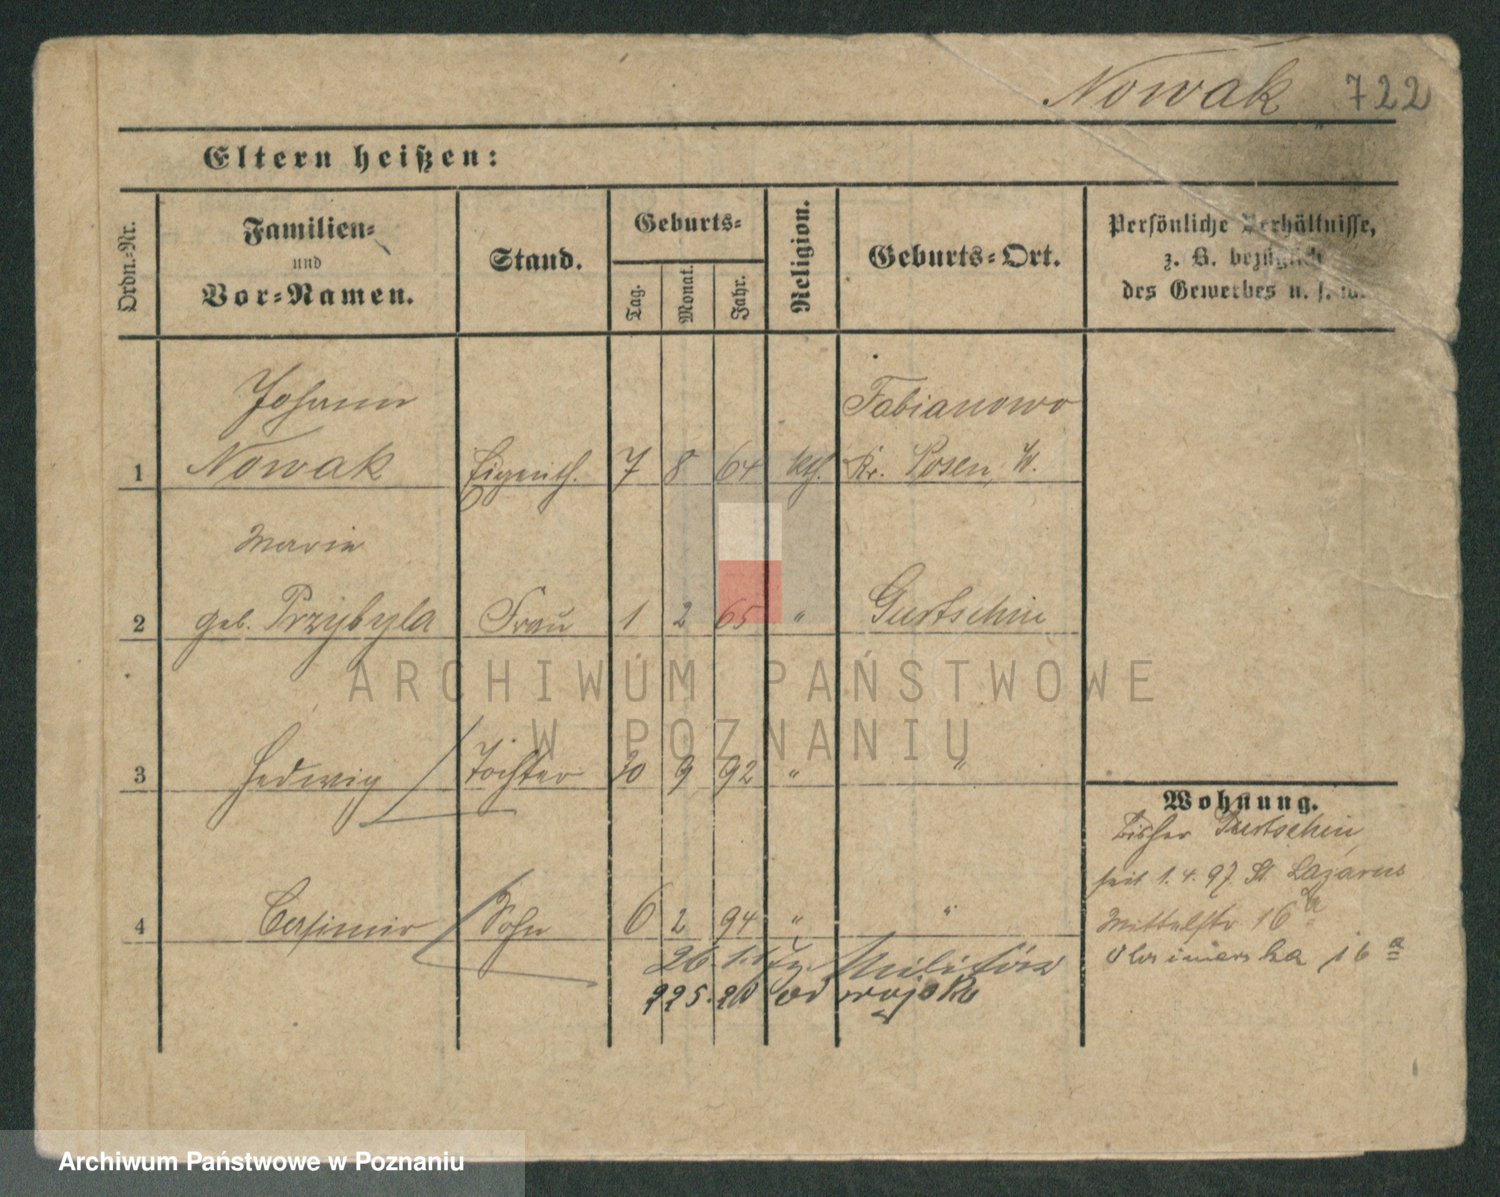 Nowak 722
Eltern heißen:
Ordn.-Nr.
Familien-
und
Vor-Namen.
Stand.
Geburts-
Tag.
Monat.
Jahr.
Religion.
Geburts-Ort.
Persönliche Verhältnisse,
z. B. bezüglich
des Gewerbes u. s. w.
Johann Fabianowo
1 Nowak Eigenth. 7 8 64 kth. Kr. Posen W.
Marie
2 geb. Przybyla Frau 1 2 65 " Gurtschin
3 Hedwig Tochter 20 9 92 " "
Wohnung.
bisher Gurtschin
seit 1.4.97. St. Lazarus
Mittelstr 16a
4 Casimir Sohn 6 2 94 " "
16a
26. Militär
225.20 od wojska
ARCHIWUM PAŃSTWOWE
W POZNANIU
Archiwum Państwowe w Poznaniu